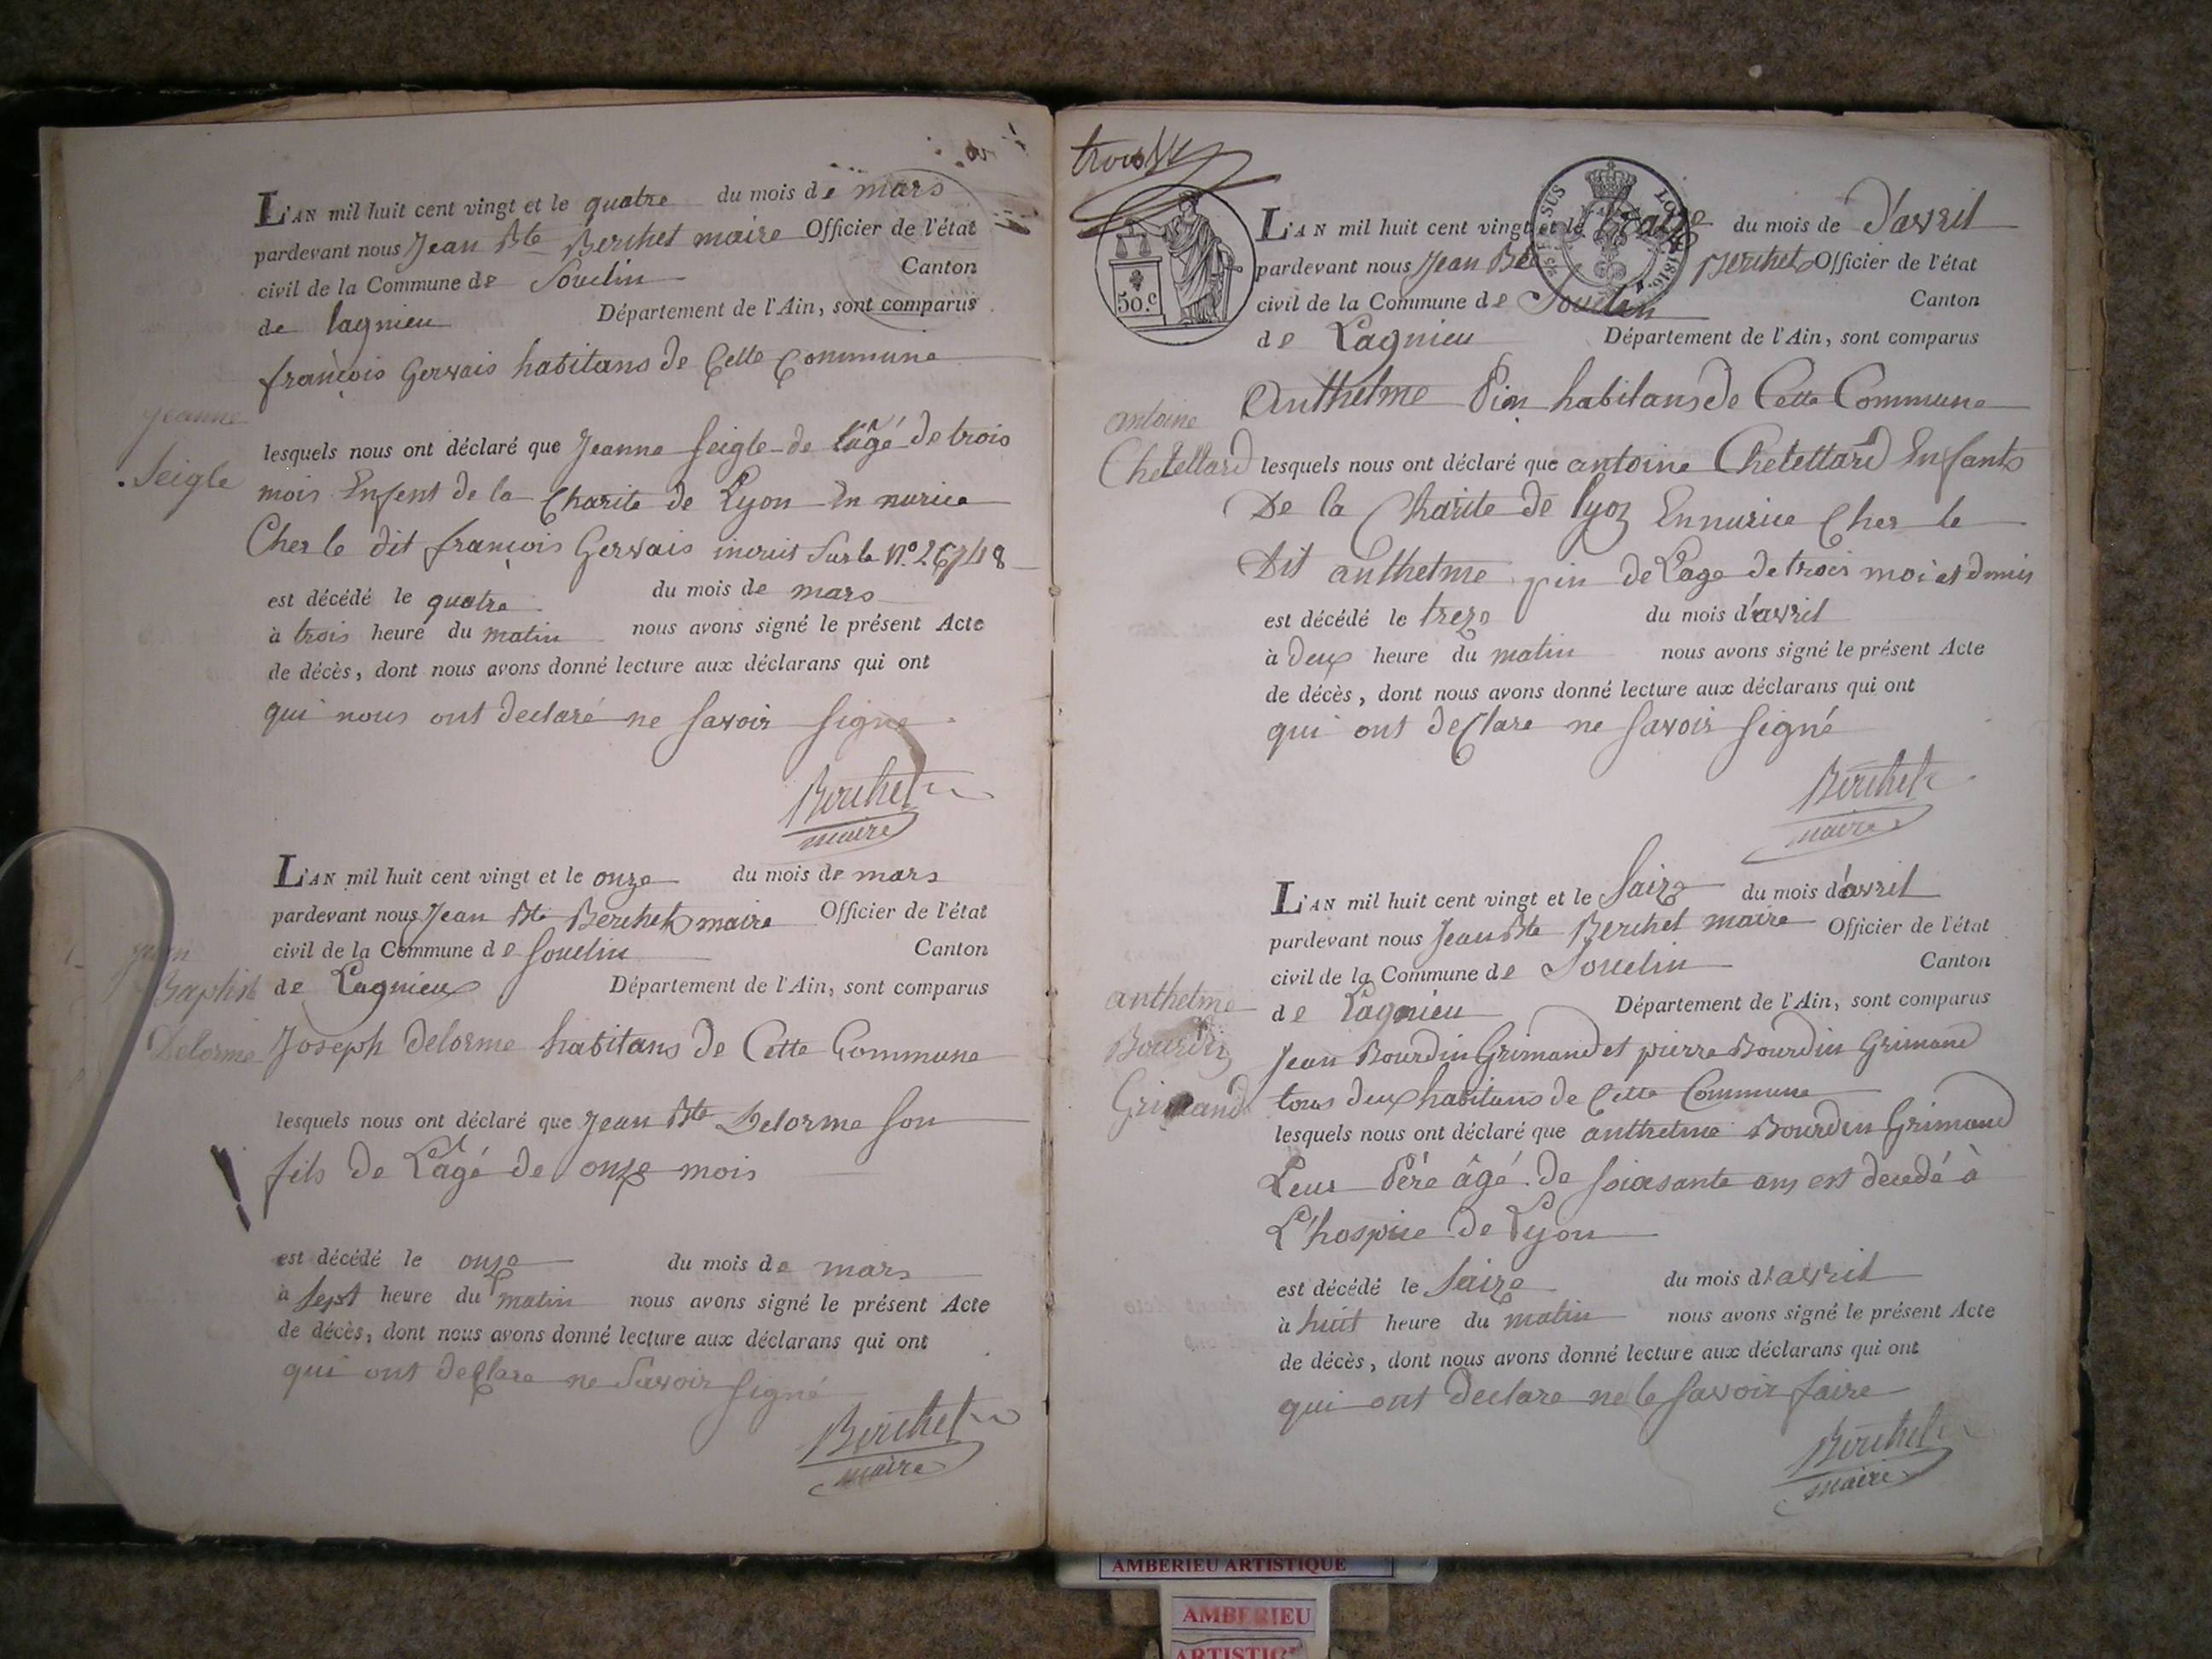 L'AN mil huit cent vingt et le quatre du mois de mars
pardevant nous Jean Bte Berchet maire Officier de l'état
civil de la Commune de Souclin Canton
de lagnieu Département de l'Ain, sont comparus
françois Gervais habitans de Cette Commune
Jeanne
Seigle
lesquels nous ont déclaré que Jeanne Seigle de l'âgé de trois
mois Enfent de la Charite de Lyon En nurice
Cher le dit françois Gervais incruit Sur le N.º 26748
est décédé le quatre du mois de mars
à trois heure du matin nous avons signé le présent Acte
de décès, dont nous avons donné lecture aux déclarans qui ont
qui nous ont declaré ne Savoir Signe
Berchet
maire
L'AN mil huit cent vingt et le onze du mois de mars
pardevant nous Jean Bte Berchet maire Officier de l'état
civil de la Commune de Souclin Canton
Jean
Baptiste
Delorme
de Lagnieu Département de l'Ain, sont comparus
Joseph Delorme habitans de Cette Commune
lesquels nous ont déclaré que Jean Bte Delorme Son
fils de L'agé de onze mois
est décédé le onze du mois de mars
à Sept heure du matin nous avons signé le présent Acte
de décès, dont nous avons donné lecture aux déclarans qui ont
qui ont declare ne Savoir Signé
Berchet
maire
trois
50.c
SUS
LO
1816.
L'AN mil huit cent vingt et le traize du mois de D'avril
pardevant nous Jean Bte Berchet Officier de l'état
civil de la Commune de Souclin Canton
de Lagnieu Département de l'Ain, sont comparus
Anthelme Pin habitans de Cette Commune
antoine
Chetellard
lesquels nous ont déclaré que antoine Chetellard Enfants
De la Charite de lyon En nurice Cher le
Dit anthelme pin de L'age de trois moi et dmis
est décédé le treze du mois d'avril
à Deux heure du matin nous avons signé le présent Acte
de décès, dont nous avons donné lecture aux déclarans qui ont
qui ont declare ne Savoir Signé
Berchet
maire
L'AN mil huit cent vingt et le Saize du mois d'avril
pardevant nous Jean Bte Berchet maire Officier de l'état
civil de la Commune de Souclin Canton
de Lagnieu Département de l'Ain, sont comparus
anthelme
Bourdin
Grimand
Jean Bourdin Grimand et pierre Bourdin Grimand
tous deux habitans de Cette Commune
lesquels nous ont déclaré que anthelme Bourdin Grimand
Leur Péré âgé De Soixsante ans est decedé à
L'hospice de Lyon
est décédé le Saize du mois d'avril
à huit heure du matin nous avons signé le présent Acte
de décès, dont nous avons donné lecture aux déclarans qui ont
qui ont declare ne le Savoir faire
Berchet
maire
AMBERIEU ARTISTIQUE
AMBERIEU
ARTISTIQ